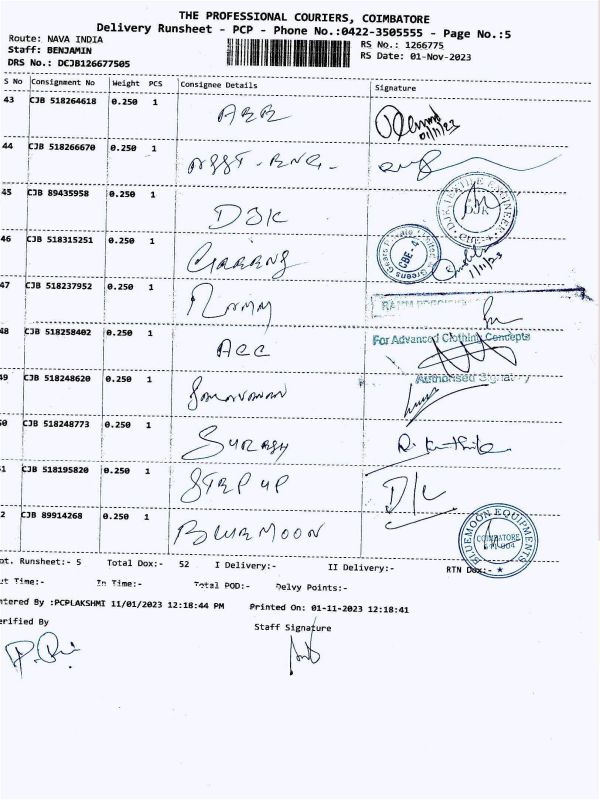 THE PROFESSIONAL COURIERS, COIMBATORE
Delivery Runsheet - PCP - Phone No.:0422-3505555 - Page No.:5
Route: NAVA INDIA
RS No.: 1266775
Staff: BENJAMIN
RS Date: 01-Nov-2023
DRS No.: DCJB126677505
S No Consignment No Weight PCS Consignee Details Signature
43 CJB 518264618 0.250 1
01/11/23
44 CJB 518266670 0.250 1 ASST. ENG.
45 CJB 89435958 0.250 1 DJK
DJK
46 CJB 518315251 0.250 1
CBE-4
1/11/23
47 CJB 518237952 0.250 1
48 CJB 518258402 0.250 1 ACC
For Advanced Clothing Concepts
49 CJB 518248620 0.250 1 Saravanan
Authorised Signatory
0 CJB 518248773 0.250 1 SURESH
1 CJB 518195820 0.250 1 STEP UP
2 CJB 89914268 0.250 1 BLUEMOON
BLUEMOON EQUIPMENTS
COIMBATORE
ot. Runsheet:- 5 Total Dox:- 52 I Delivery:- II Delivery:- RTN Dox:-
ut Time:- In Time:- Total POD:- Delvy Points:-
ntered By :PCPLAKSHMI 11/01/2023 12:18:44 PM Printed On: 01-11-2023 12:18:41
erified By
Staff Signature